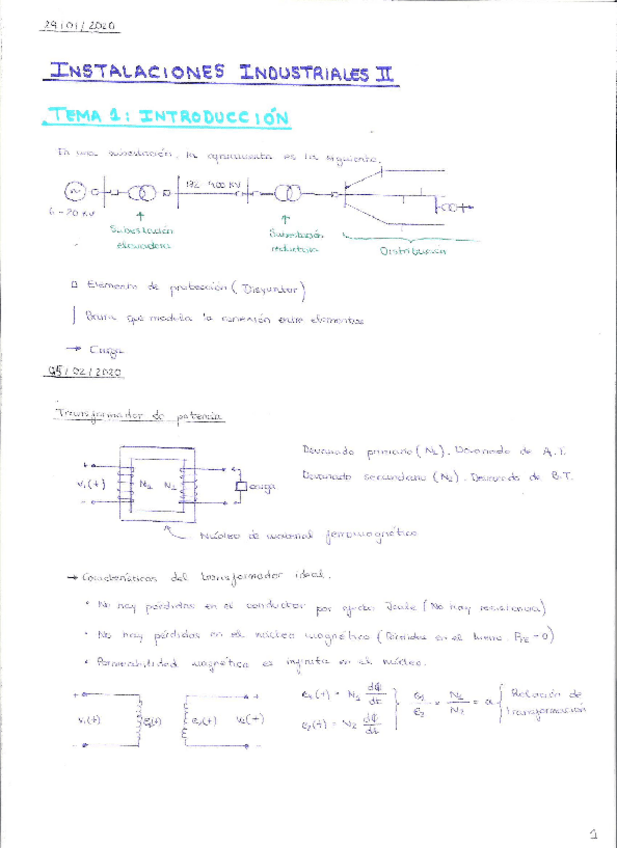 29/01/2020
INSTALACIONES INDUSTRIALES II
TEMA 1: INTRODUCCIÓN
En una subestación, la aparamenta es la siguiente.
6-20 KV
132 - 400 KV
Subestación elevadora
Subestación reductora
Distribución
Elemento de protección (Disyuntor)
Barra que modela la conexión entre elementos
→ Carga
05/02/2020
Transformador de potencia
Devanado primario (N1). Devanado de A.T.
Devanado secundario (N2). Devanado de B.T.
+ V1(t) -
N1 N2
carga
Núcleo de material ferromagnético
→ Características del transformador ideal.
• No hay pérdidas en el conductor por efecto Joule (No hay resistencia)
• No hay pérdidas en el núcleo magnético (Pérdidas en el hierro. PFe = 0)
• Permeabilidad magnética es infinita en el núcleo.
+ V1(t) - e1(t) e2(t) V2(t) + -
e1(t) = N1 dΦ/dt
e2(t) = N2 dΦ/dt
e1/e2 = N1/N2 = a { Relación de transformación
1